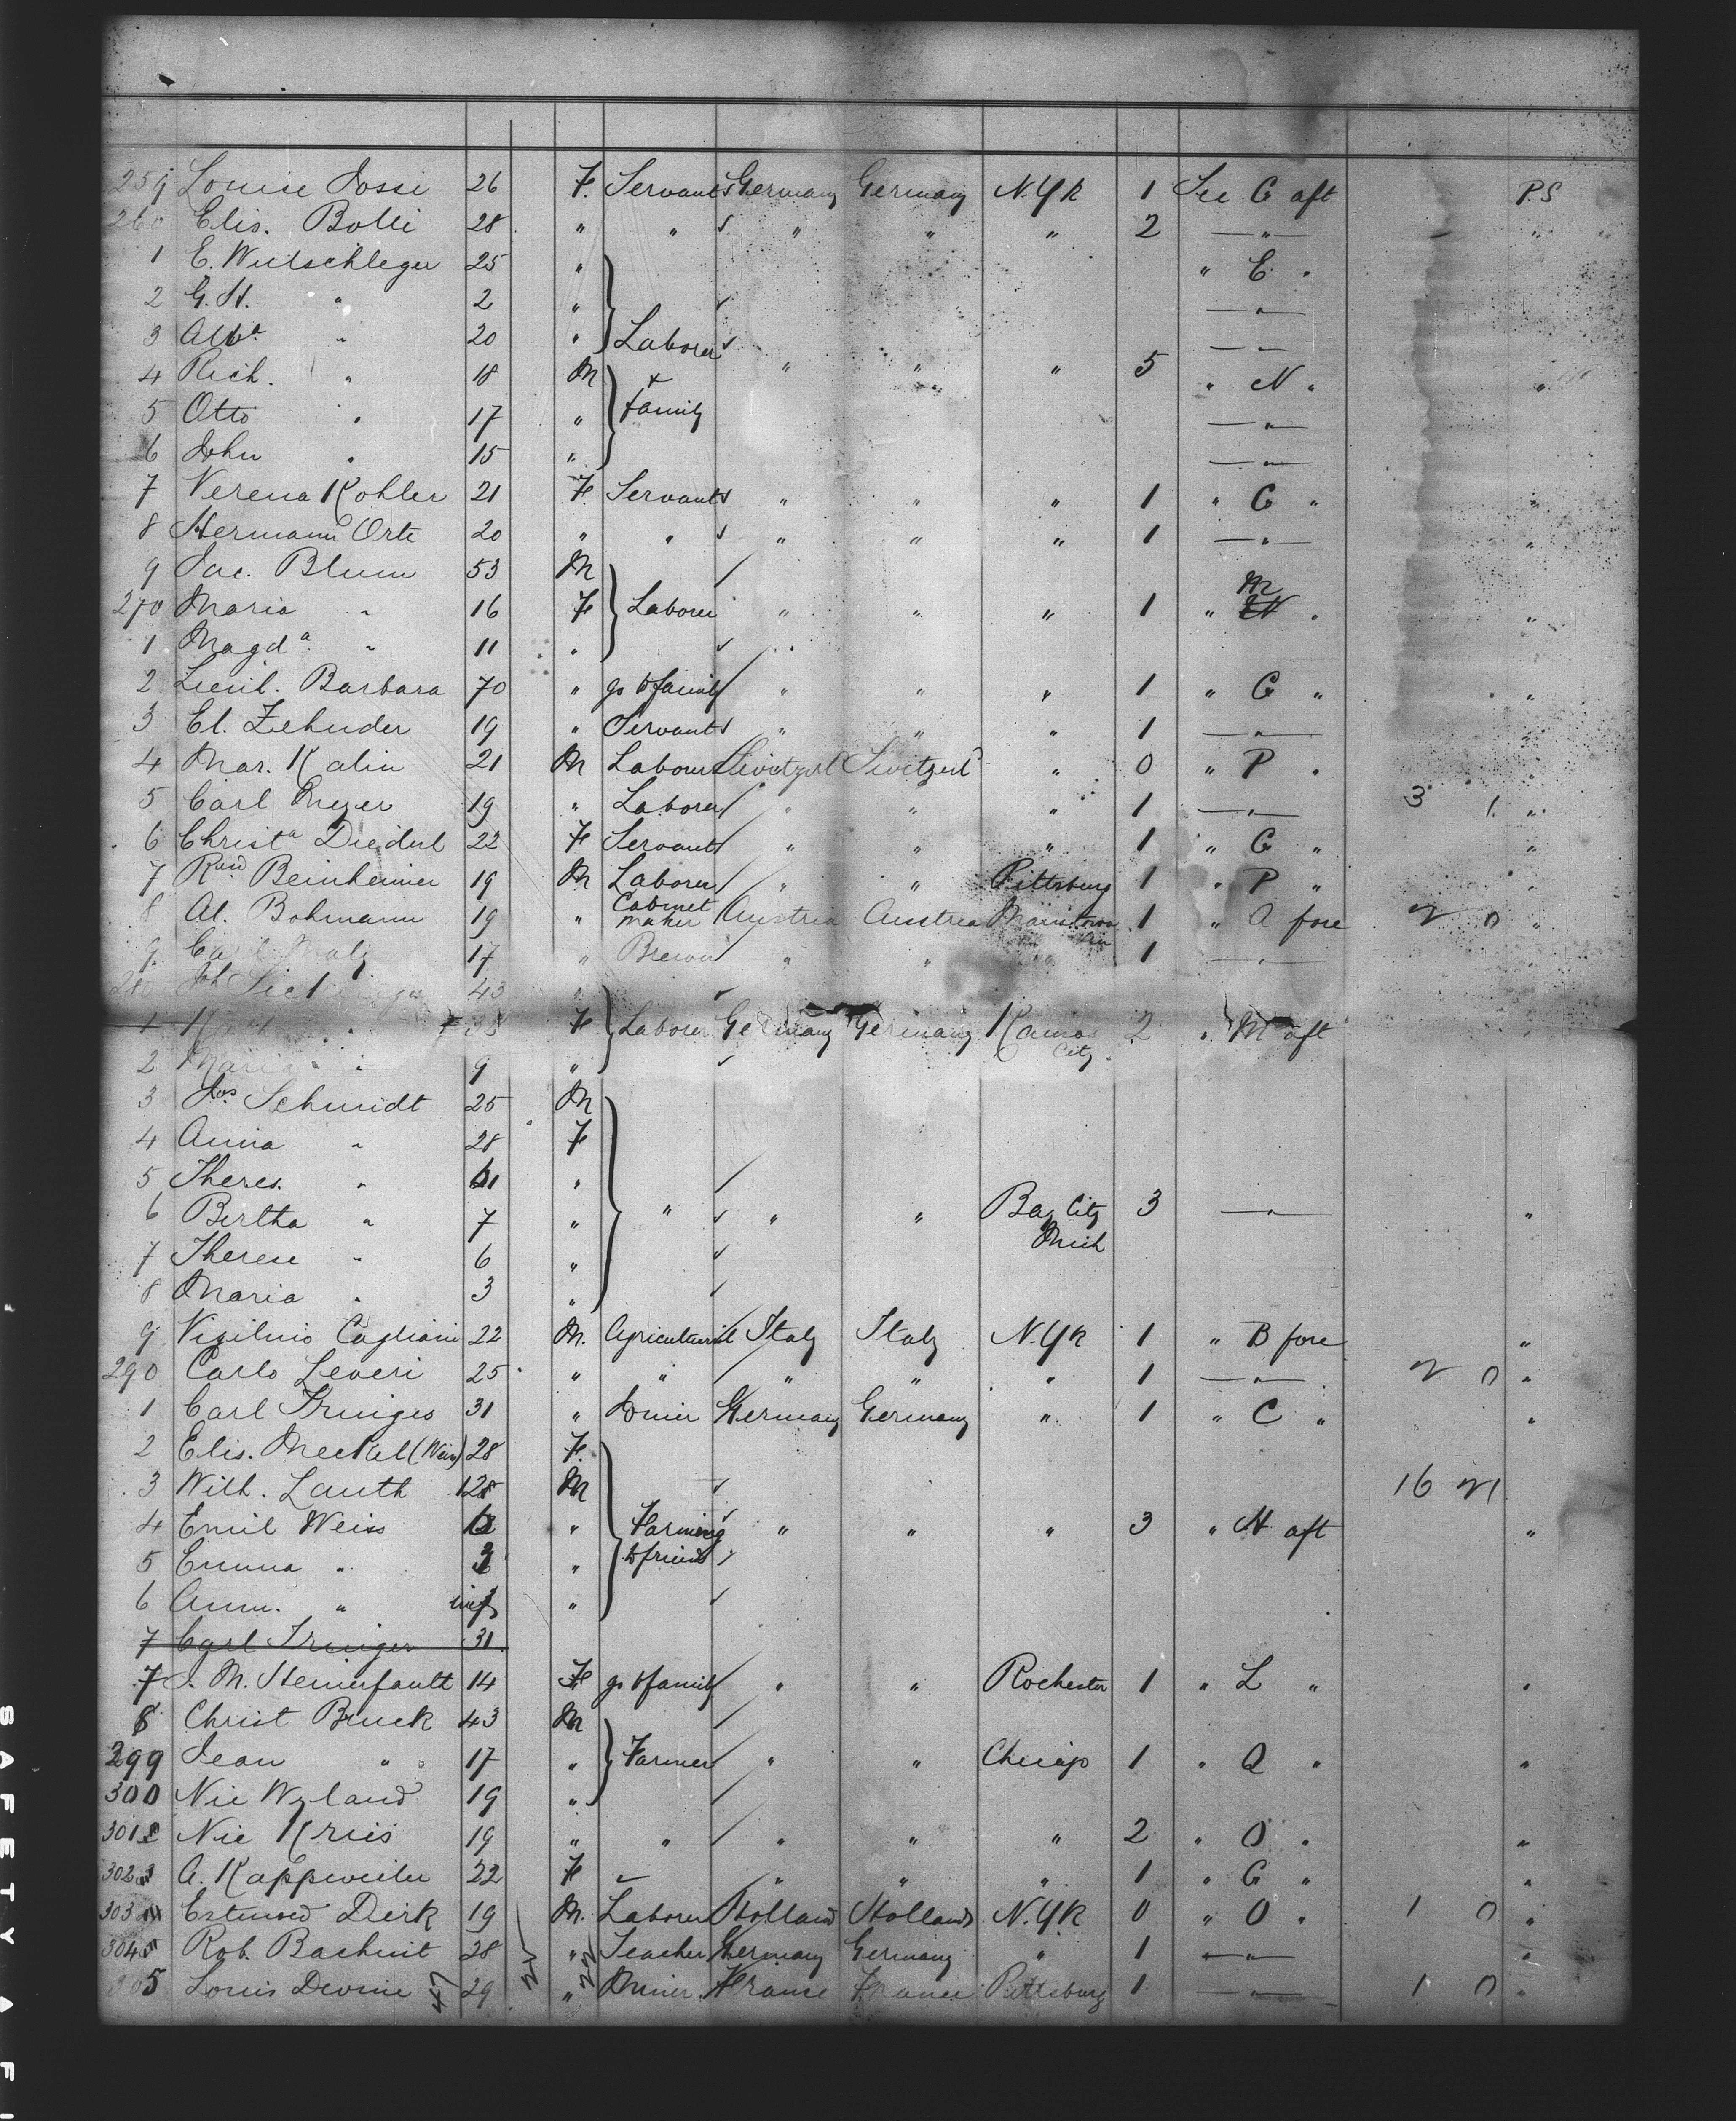 259 Louise Jossi 26 F. Servants Germany Germany N.Yk 1 See G aft P.S
260 Elis. Bolli 28 " " " " " 2 — " — "
1 E. Wutschleger 25 " " E "
2 G. H. " 2 " — " —
3 Alba " 20 " Laborer — " —
4 Rich. " 18 M & family " " " 5 " N " "
5 Otto " 17 " — " —
6 John " 15 " — " —
7 Verena Kohler 21 F Servants " " " 1 " G " "
8 Hermann Orte 20 " " " " " 1 — " — "
9 Jac. Blum 53 M
270 Maria " 16 F Laborer " " " 1 " M " "
1 Magda " 11 "
2 Barbara 70 " go to family " " " 1 " G " "
3 El. Zehnder 19 " Servants " " " 1 — " — "
4 Mar. Kalin 21 M Laborer Switzerl Switzerl " 0 " P " "
5 Carl Meyer 19 " Laborer " " " 1 — " — 3 1 "
6 Christa Diederl 22 F Servants " " " 1 " G " "
7 Beinheimer 19 M Laborer " " Pittsburg 1 " P " "
8 Al. Bohmann 19 " Cabinet maker Austria Austria 1 " A fore 2 0 "
9 17 " " " " 1 — " —
280 43 "
1 " F Laborer Germany Germany Kansas City 2 " M aft
2 Maria " 9 "
3 Jos Schmidt 25 M
4 Anna " 28 F
5 Theres. " "
6 Bertha " 7 " " " " Bay City Mich 3 — " — "
7 Therese " 6 "
8 Maria " 3 "
9 Vigilnio Cagliani 22 M. Agriculturist Italy Italy N.Yk 1 " B fore "
290 Carlo Leveri 25 " " " " " 1 — " — 2 0 "
1 Carl Iringer 31 " Germany Germany " 1 " C " "
2 Elis. Meckel 28 F.
3 Wilh. Lauth 28 M 16 21
4 Emil Weiss " Farming " " " 3 " H aft "
5 Emma " " to friends
6 Ann. " inf "
7 Carl Iringer 31
7 J. M. Steinfault 14 F go to family " " Rochester 1 " L " "
8 Christ Bruck 43 M
299 Jean " 17 " Farmer " " Chicago 1 " Q " "
300 Nic Wyland 19 "
301 Nic Kries 19 " " " " " 2 " O " "
302 A. Kappweiler 22 F " " " " 1 " G " "
303 Dirk 19 M. Laborer Holland Holland N.Yk 0 " O " 1 0 "
304 Rob. Bachnit 28 " Teacher Germany Germany " 1 — " — "
305 Louis Devine 29 " Miner France France Pittsburg 1 — " — 1 0 "
47 25 22
SAFETY A F